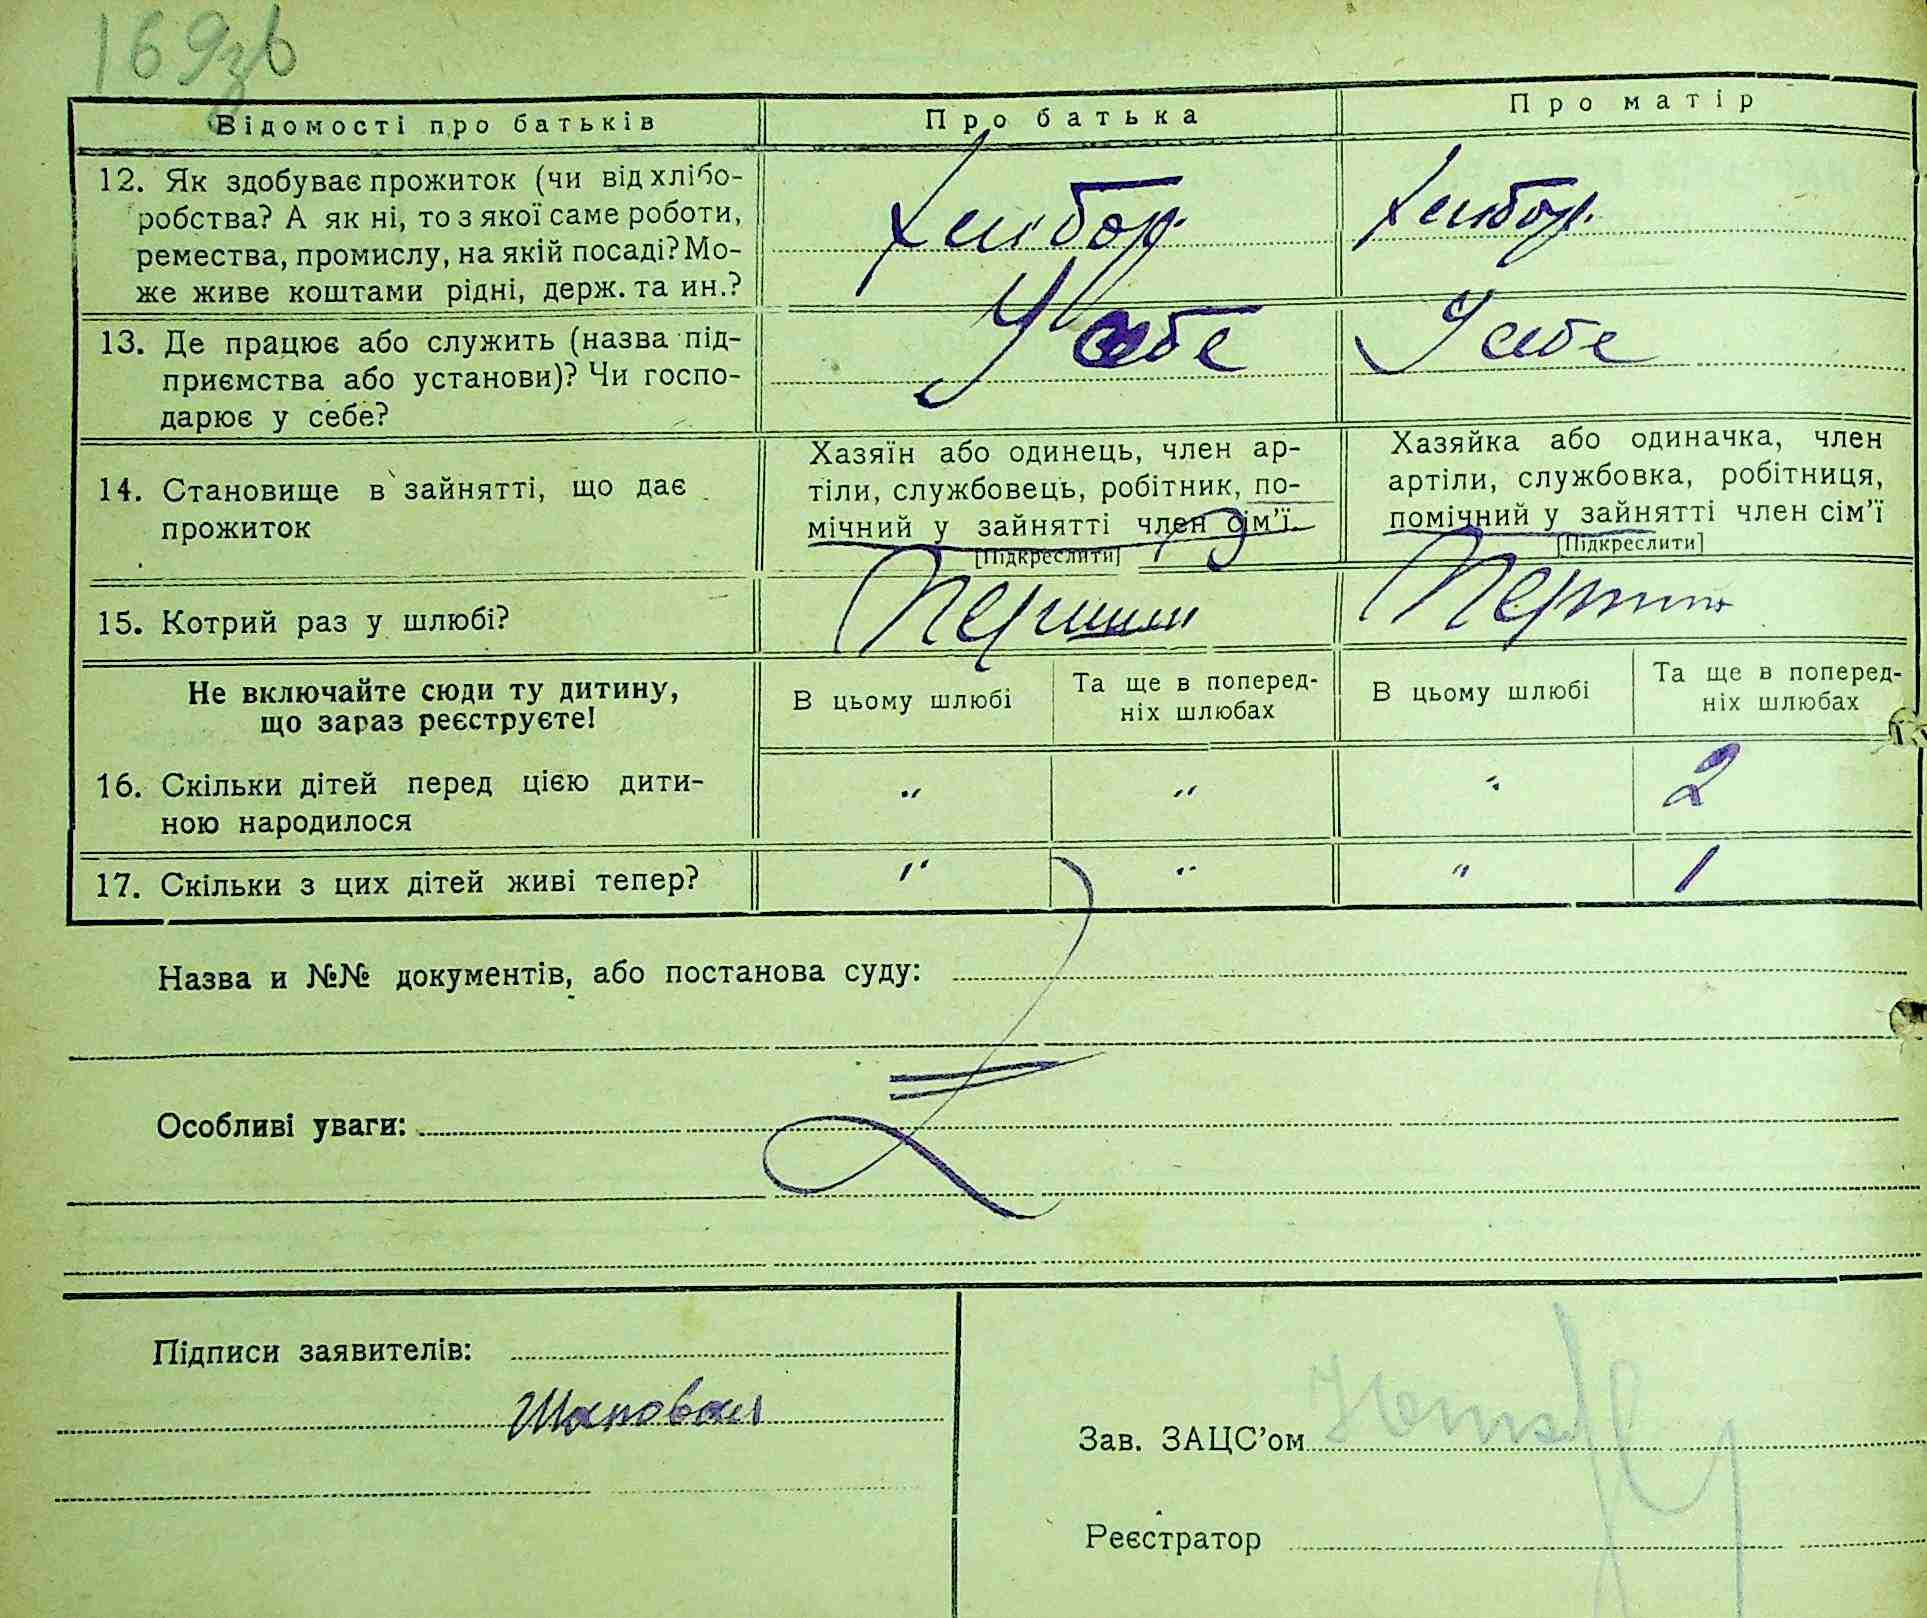 169зв
Відомості про батьків
Про батька
Про матір
12. Як здобуває прожиток (чи від хлібо-
робства? А як ні, то з якої саме роботи,
ремества, промислу, на якій посаді? Мо-
же живе коштами рідні, держ. та ин.?
Хлібор.
Хлібор.
13. Де працює або служить (назва під-
приємства або установи)? Чи госпо-
дарює у себе?
У себе
У себе
14. Становище в зайнятті, що дає
прожиток
Хазяїн або одинець, член ар-
тіли, службовець, робітник, по-
мічний у зайнятті член сім’ї.
[Підкреслити]
Хазяйка або одиначка, член
артіли, службовка, робітниця,
помічний у зайнятті член сім’ї
[Підкреслити]
15. Котрий раз у шлюбі?
Не включайте сюди ту дитину,
що зараз реєструєте!
В цьому шлюбі
Та ще в поперед-
ніх шлюбах
В цьому шлюбі
Та ще в поперед-
ніх шлюбах
16. Скільки дітей перед цією дити-
ною народилося
" " " 2
17. Скільки з цих дітей живі тепер?
" " " 1
Назва и №№ документів, або постанова суду:
Особливі уваги:
Підписи заявителів:
Шаповал
Зав. ЗАЦС’ом
Реєстратор